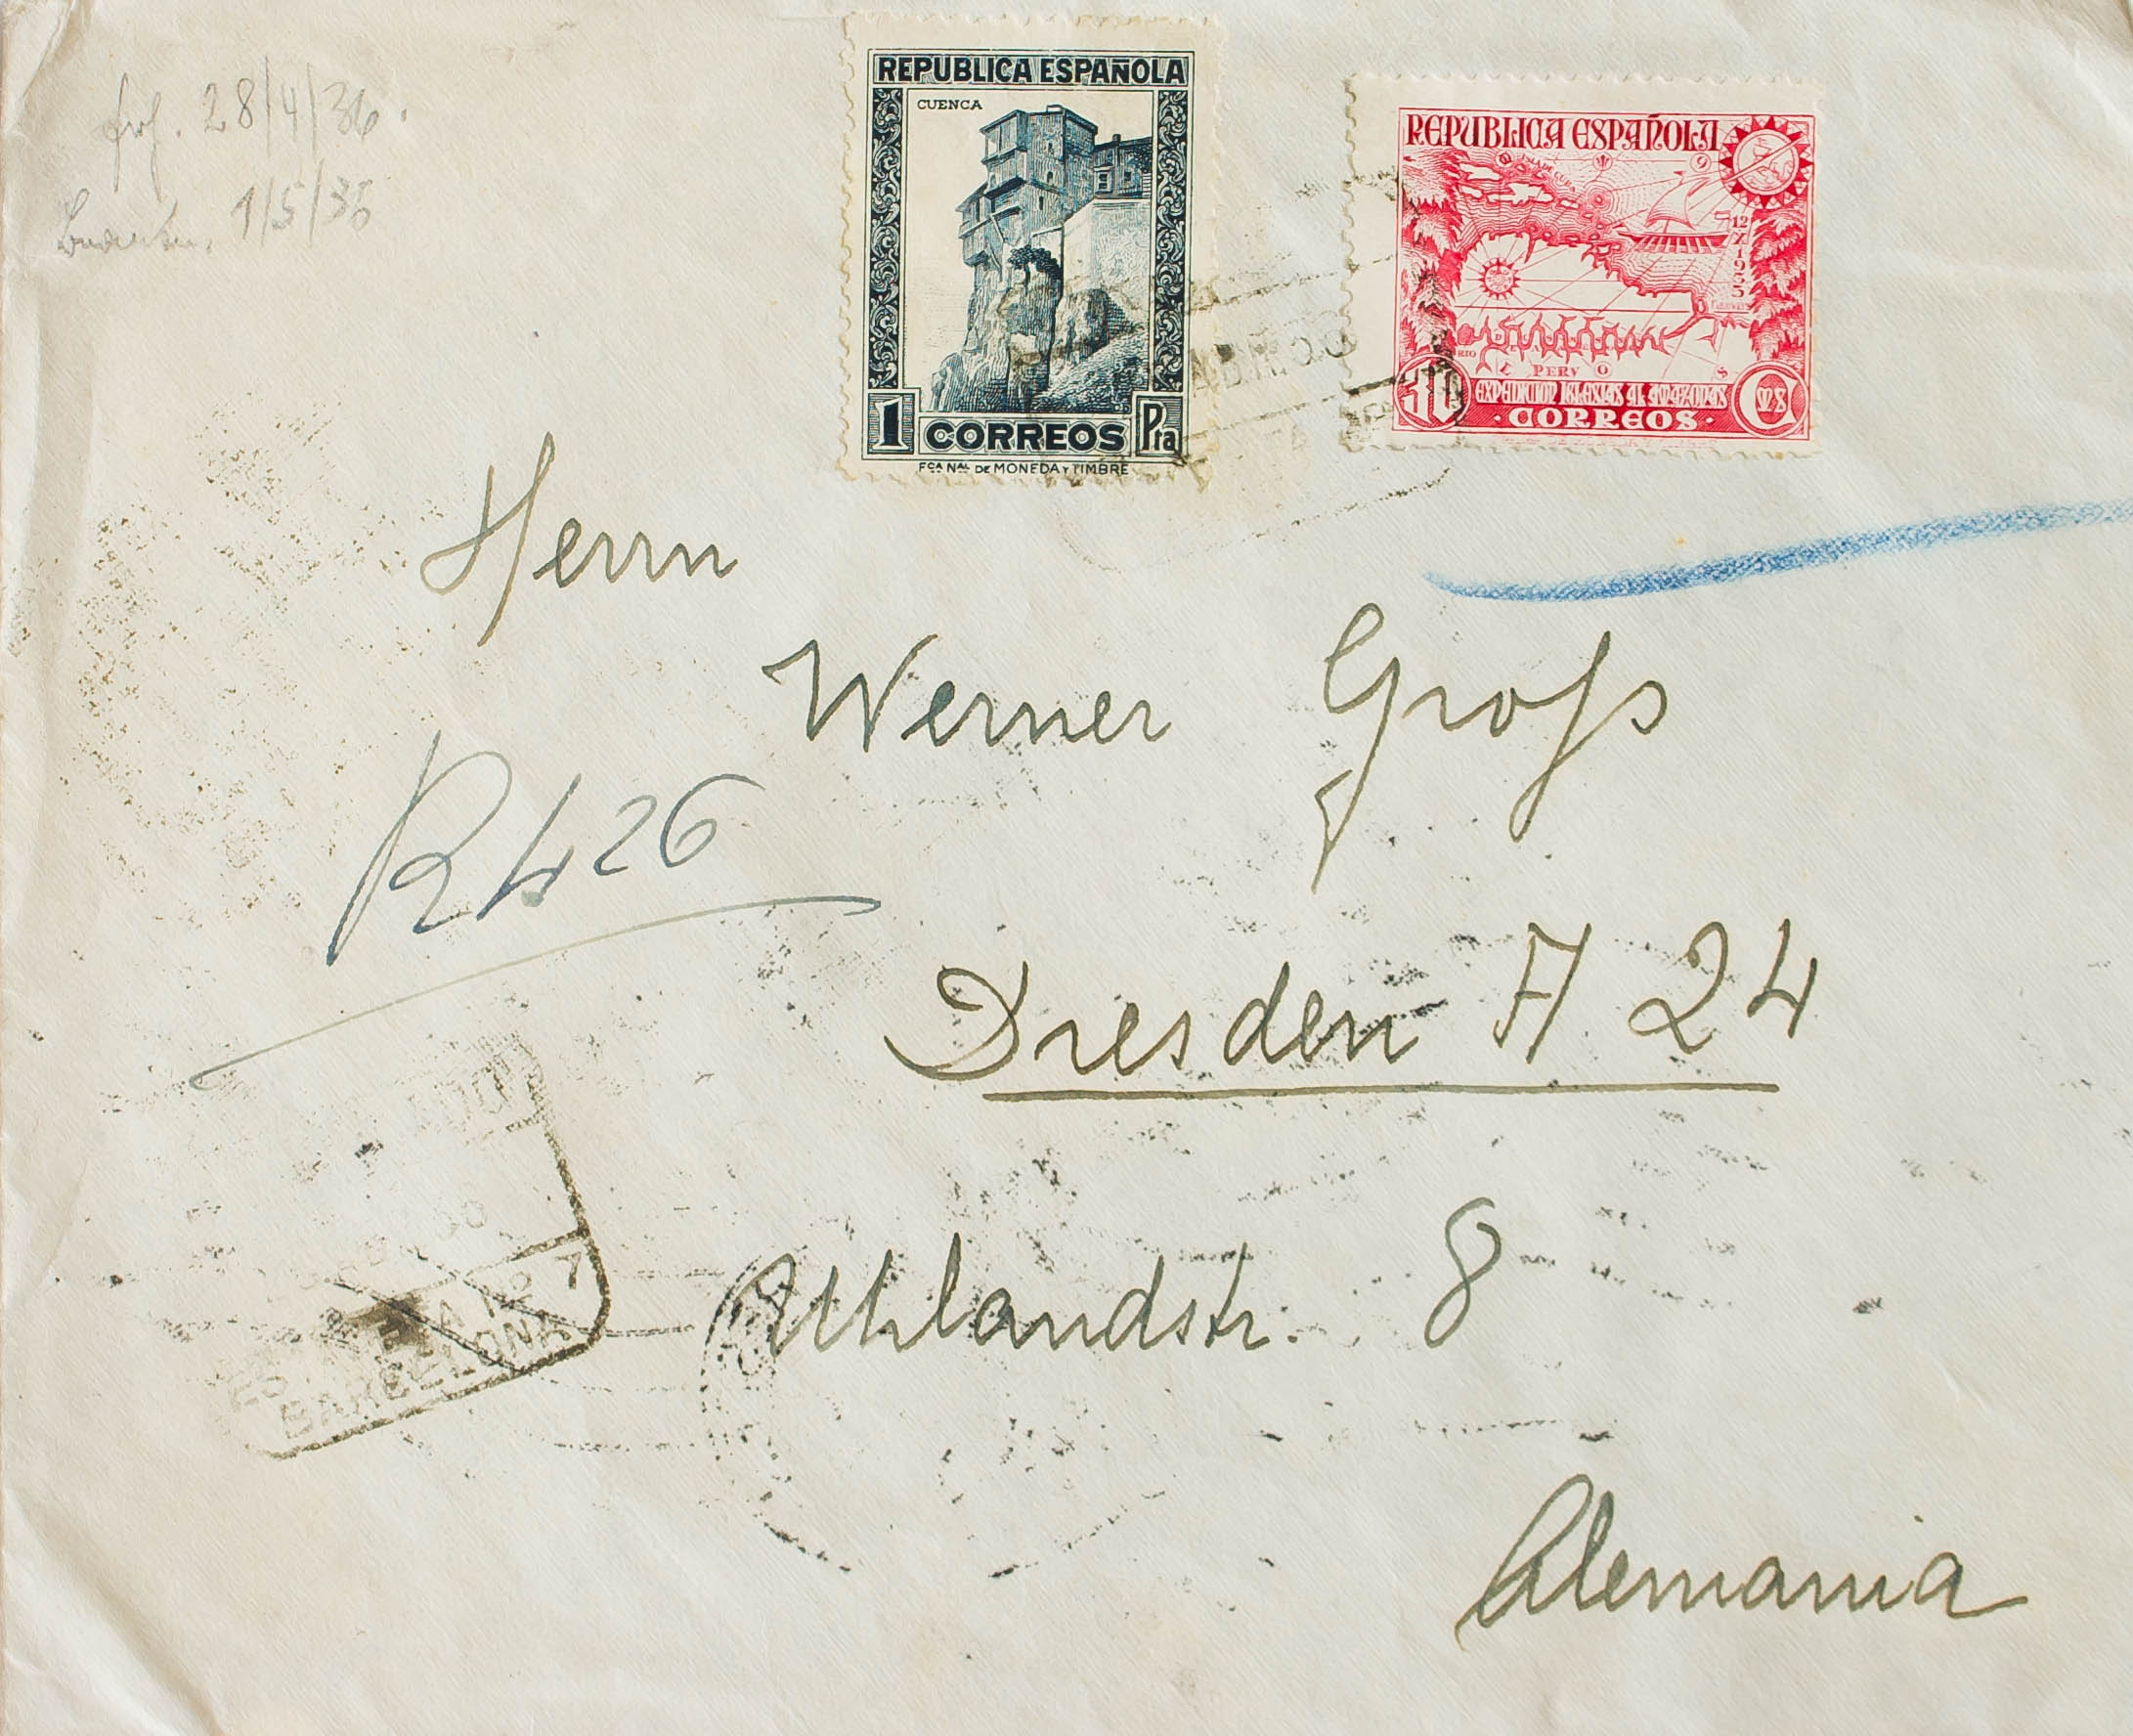 28/4/36.
1/5/36
REPUBLICA ESPAÑOLA
CUENCA
1 CORREOS Pta
FCA NAL DE MONEDA Y TIMBRE
REPUBLICA ESPAÑOLA
ISLA DE CUBA
12 X 1935
PERV
EXPEDICION IGLESIAS AL AMAZONAS
CORREOS
CMS
Herrn
Werner Groß
R 426
Dresden A 24
Uhlandstr. 8
Alemania
Nº 7
BARCELONA